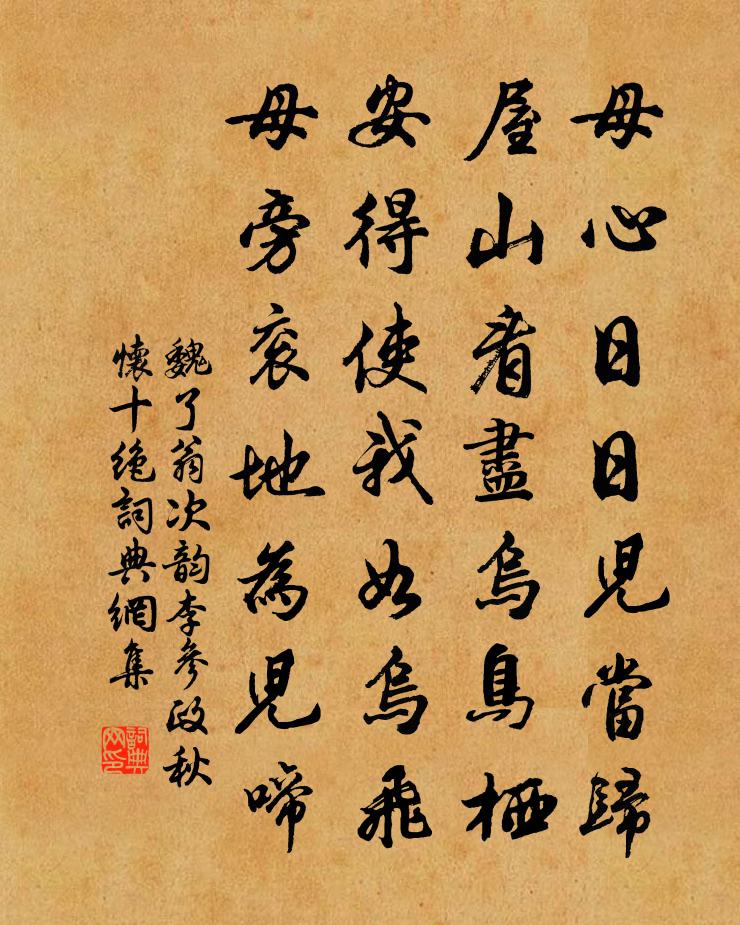 母心日日兒當歸
屋山看盡烏鳥栖
安得使我如烏飛
母旁衮地為兒啼
魏了翁次韵李參政秋
懷十絶詞典網集
詞典网印